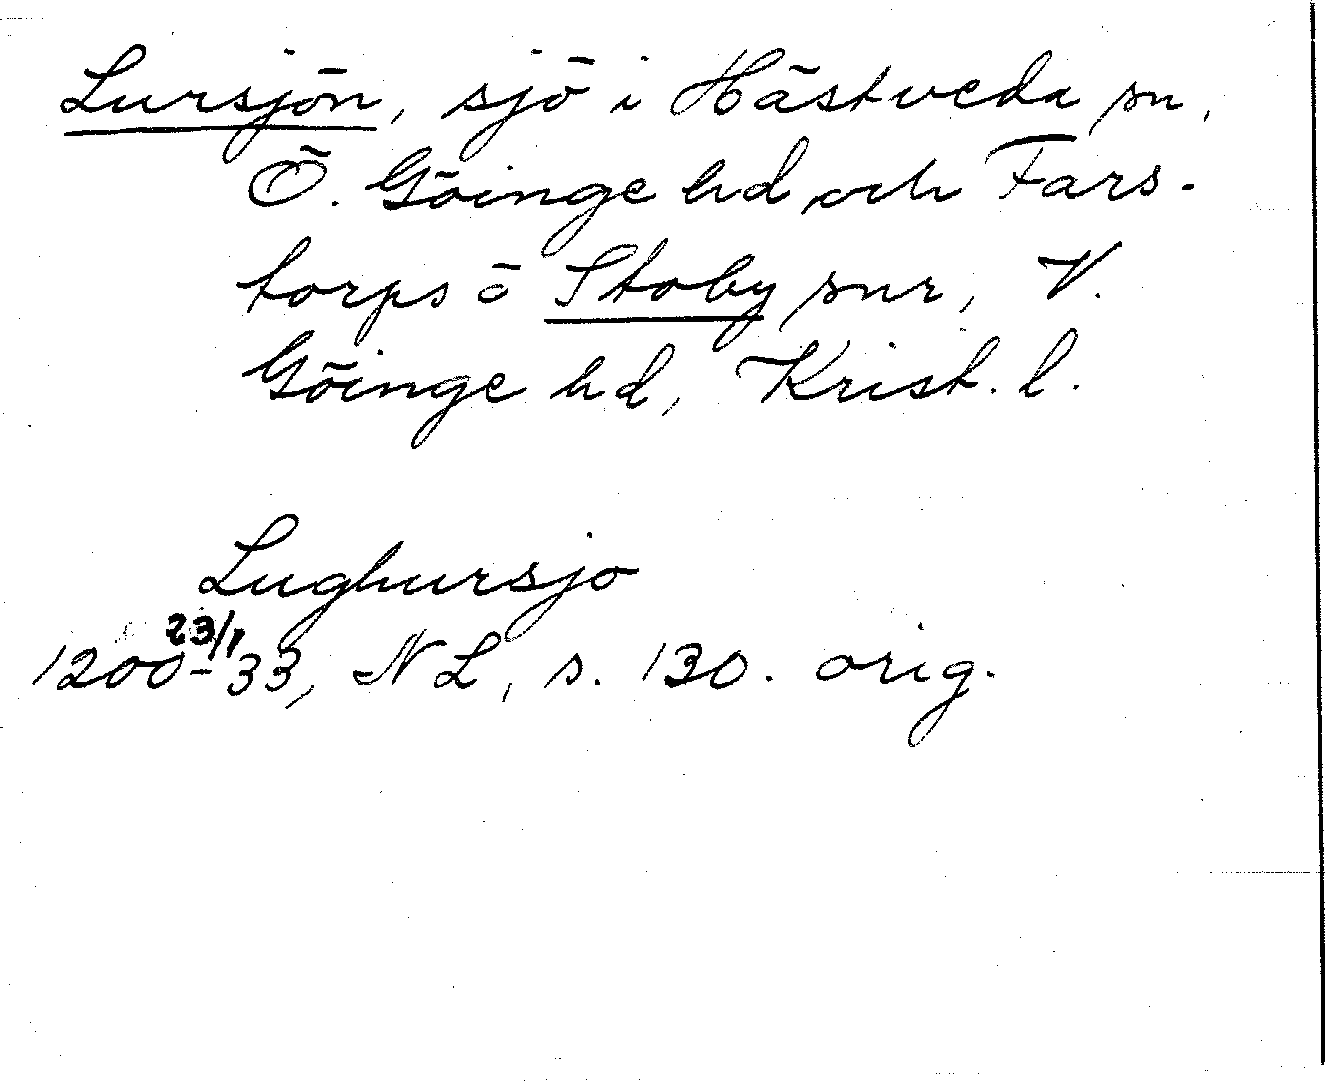 Lursjön, sjö i Hästveda sn,
Ö. Göinge hd och Fars-
torps o Stoby snr, V.
Göinge hd, Krist. l.
Lughursjo
23/1
1200-33, NL, s. 130. orig.